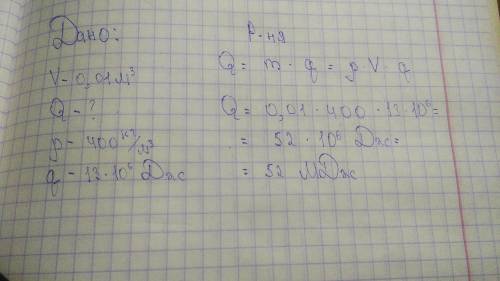 Дано:
V - 0,01 м³
Q - ?
ρ - 400 кг/м³
q - 13 · 10⁶ Дж
Р-ня
Q = m · q = ρ V · q
Q = 0,01 · 400 · 13 · 10⁶ =
= 52 · 10⁶ Дж =
= 52 МДж